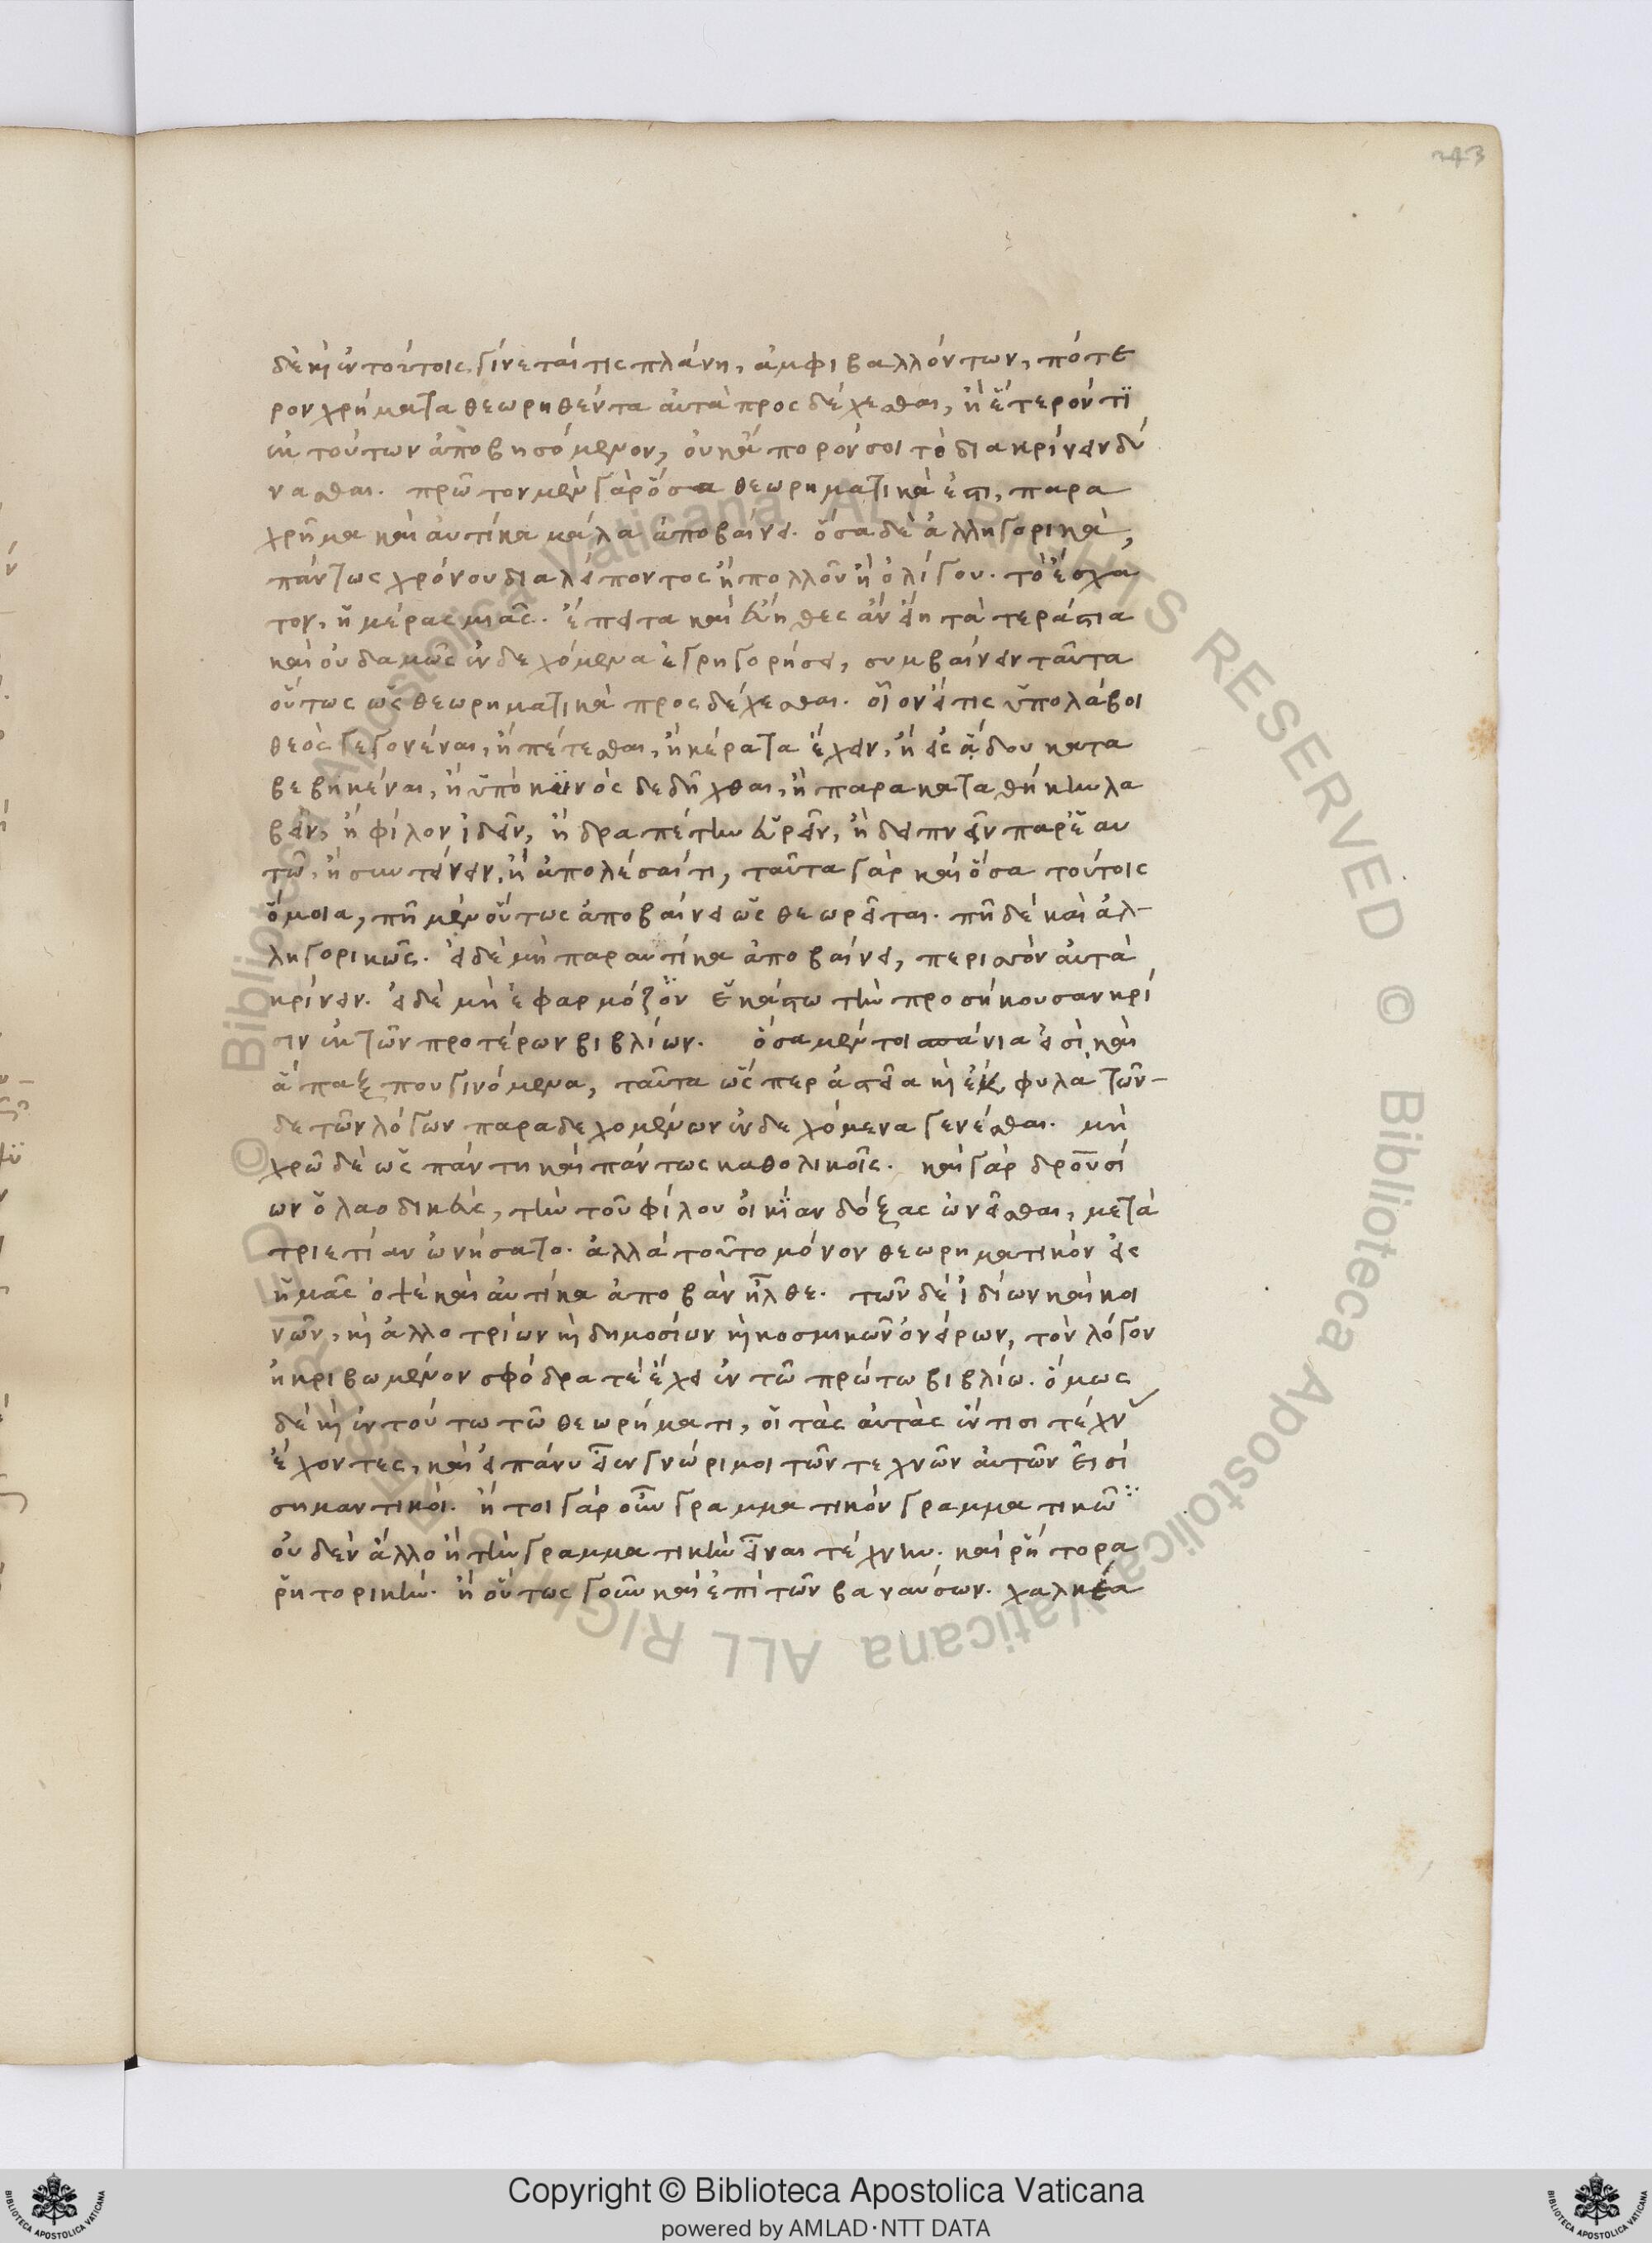 243
δὲ κἀν τούτοις γίνεταί τις πλάνη, ἀμφιβαλλόντων, πότε
ρον χρὴ ματα θεωρηθέντα αὐτὰ προσδέχεσθαι, ἢ ἕτερόν τι
ἐκ τούτων ἀποβησόμενον, οὐκ ἄπορόν σοι τὸ διακρίνειν δύ
νασθαι. πρῶτον μὲν γὰρ ὅσα θεωρηματικά ἐστι, παρα
χρῆμα καὶ αὐτίκα μάλα ἀποβαίνει. ὅσα δὲ ἀλληγορικὰ,
πάντως χρόνου διαλείποντος ἢ πολλοῦ ἢ ὀλίγου. τὸ ἔσχα
τον, ἡμέρας μιᾶς. ἔπειτα καὶ εὔηθες ἂν εἴη τὰ τεράστια
καὶ οὐδαμῶς ἐνδεχόμενα ἐγρηγορήσει, συμβαίνειν ταῦτα
οὕτως ὡς θεωρηματικὰ προσδέχεσθαι. οἷον εἴ τις ὑπολάβοι
θεὸς γεγονέναι, ἢ πέτεσθαι, ἢ κέρατα ἔχειν, ἢ εἰς ᾅδου κατα
βεβηκέναι, ἢ ὑπὸ κϋνὸς δεδῆχθαι, ἢ παρακαταθήκην λα
βεῖν, ἢ φίλον ἰδεῖν, ἢ δραπέτην εὑρεῖν, ἢ δειπνεῖν παρ' ἑαυ
τῶ, ἢ συντείνειν, ἢ ἀπολέσαί τι, ταῦτα γὰρ καὶ ὅσα τούτοις
ὅμοια, πῆ μὲν οὕτως ἀποβαίνει ὡς θεωρεῖται. πῆ δὲ καὶ ἀλ-
ληγορικῶς. εἰ δὲ μὴ παραυτίκα ἀποβαίνει, περισσὸν αὐτὰ
κρίνειν. εἰ δὲ μὴ ἐφαρμόζον ἑκάστω τὴν προσήκουσαν κρί
σιν ἐκ τῶν προτέρων βιβλίων. ὅσα μέντοι σπάνια εἰσὶ καὶ
ἅπαξ που γινόμενα, ταῦτα ὥσπερ ἀστεῖα καὶ ἔκφυλα τῶν-
δε τῶν λόγων παραδεχομένων ἐνδεχόμενα γενέσθαι. μὴ
χρῶ δὲ ὡς πάντη καὶ πάντως καθολικοῖς. καὶ γὰρ δρουσί
ων ὁ λαοδικεὺς, τὴν τοῦ φίλου οἰκίαν δόξας ὠνεῖσθαι, μετὰ
τριετίαν ὠνήσατο. ἀλλὰ τοῦτο μόνον θεωρηματικὸν εἰς
ἡμᾶς ὀψὲ καὶ αὐτίκα ἀποβὰν ἦλθε. τῶν δὲ ἰδίων καὶ κοι
νῶν, καὶ ἀλλοτρίων καὶ δημοσίων καὶ κοσμικῶν ὀνείρων, τὸν λόγον
ἠκριβωμένον σφόδρα τὲ ἔχει ἐν τῶ πρώτω βιβλίω. ὅμως
δὲ κἀν τούτω τῶ θεωρήματι, οἱ τὰς αὐτὰς ἔν τισι τέχν
ἔχοντες, καὶ εἰ πάνυ εἶεν γνώριμοι τῶν τεχνῶν αὐτῶν εἰσὶ
σημαντικοί. ἤτοι γὰρ οὖν γραμματικὸν γραμματικῶ
οὐδὲν ἄλλο ἢ τὴν γραμματικὴν εἶναι τέχνην. καὶ ῥήτορα
ῥητορικήν. ἢ οὕτως γοῦν καὶ ἐπὶ τῶν βαναύσων. χαλκέα
Copyright © Biblioteca Apostolica Vaticana
powered by AMLAD·NTT DATA